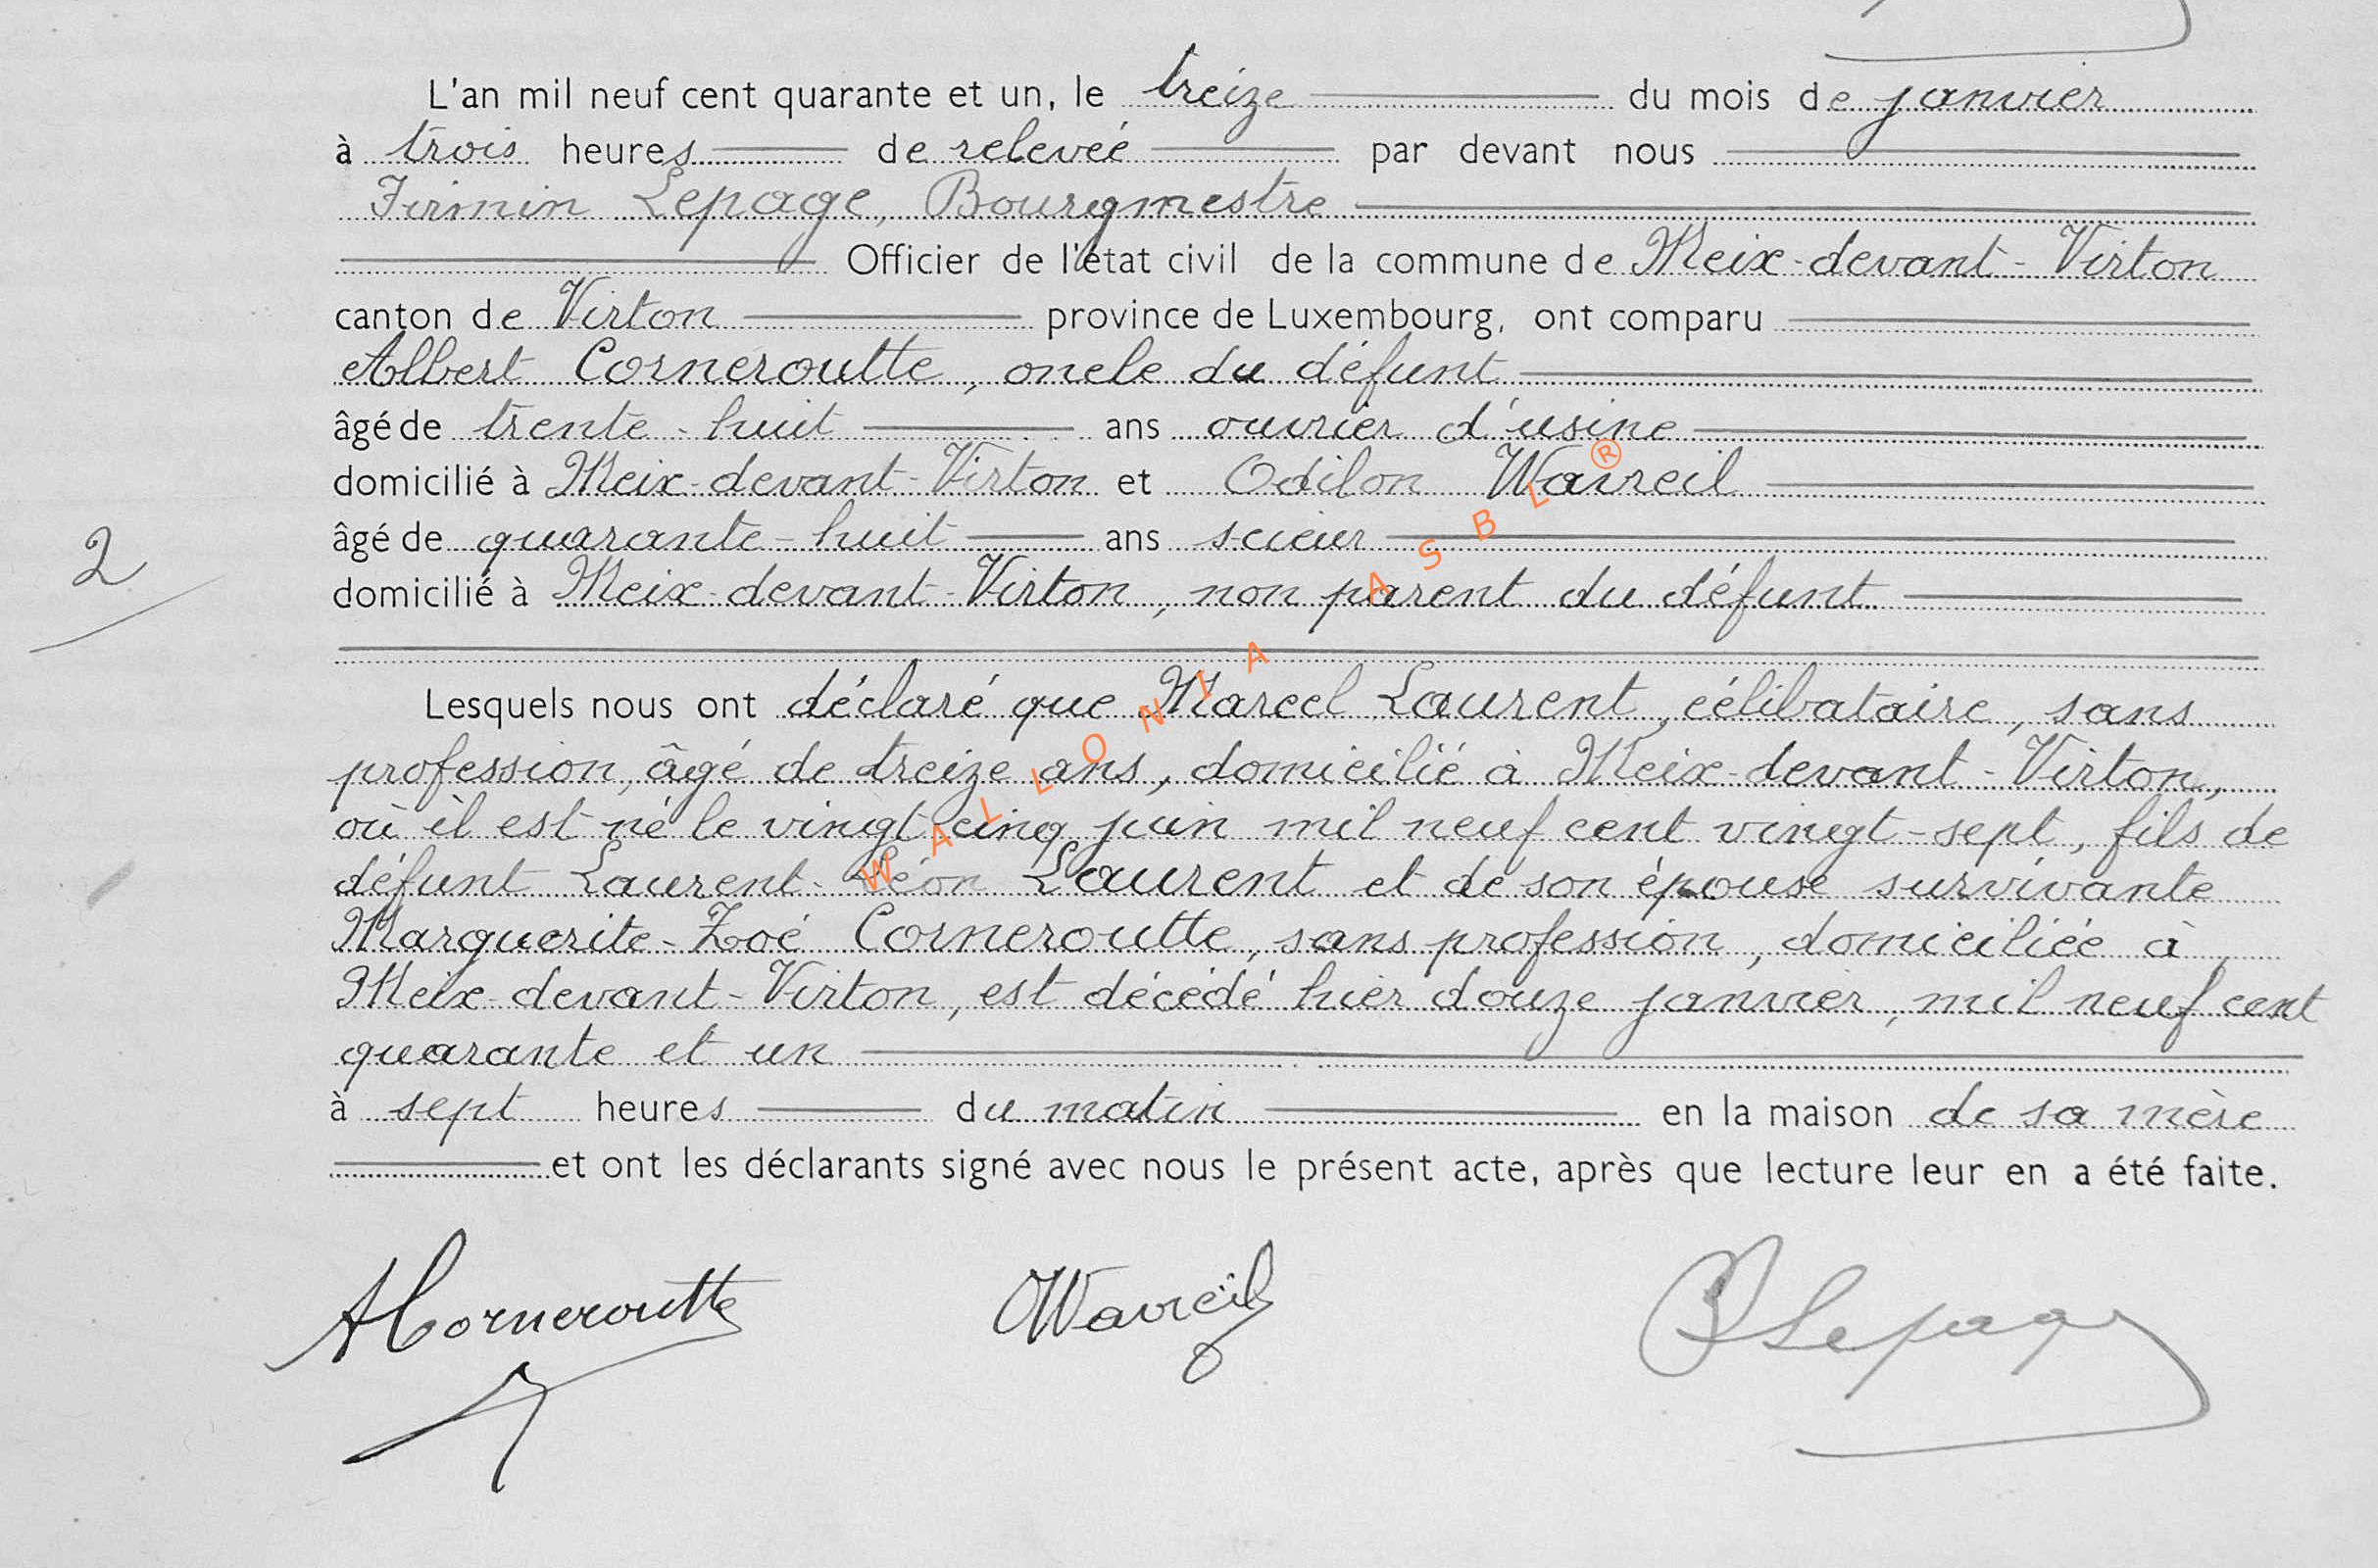 L'an mil neuf cent quarante et un, le treize du mois de janvier
à trois heures de relevée par devant nous
Firmin Lepage, Bourgmestre
Officier de l'état civil de la commune de Meix-devant-Virton
canton de Virton province de Luxembourg, ont comparu
Albert Corneroutte, oncle du défunt
âgé de trente-huit ans ouvrier d'usine
domicilié à Meix-devant-Virton et Odilon Wavreil
2 âgé de quarante-huit ans scieur
domicilié à Meix-devant-Virton, non parent du défunt
Lesquels nous ont déclaré que Marcel Laurent, célibataire, sans
profession, âgé de treize ans, domicilié à Meix-devant-Virton,
où il est né le vingt cinq juin mil neuf cent vingt-sept, fils de
défunt Laurent-Léon Laurent et de son épouse survivante
Marguerite-Zoé Corneroutte, sans profession, domiciliée à
Meix-devant-Virton, est décédé hier douze janvier, mil neuf cent
quarante et un
à sept heures du matin en la maison de sa mère
et ont les déclarants signé avec nous le présent acte, après que lecture leur en a été faite.
ACorneroutte OWavreil FLepage
WALLONIA ASBL®